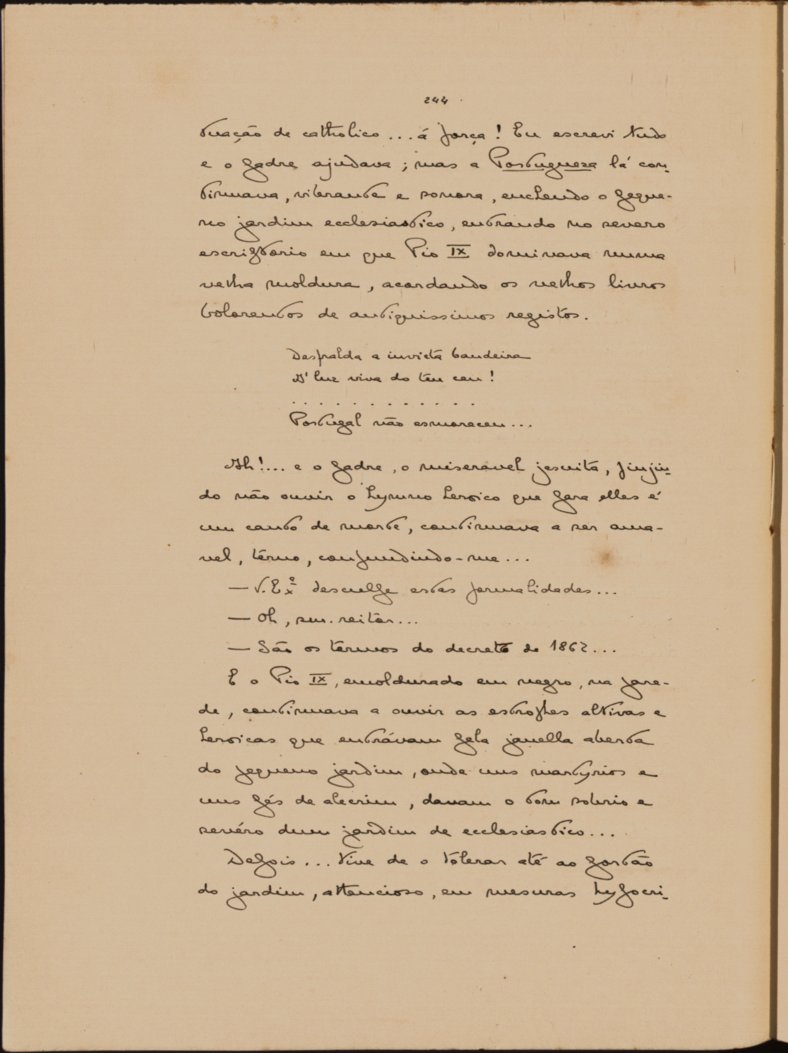 244
tuação de catholico ... á força! Eu escrevi tudo
e o padre ajudava; mas a Portugueza lá con-
tinuava, vibrante e sonora, enchendo o peque-
no jardim ecclesiastico, entrando no severo
escriptorio em que Pio IX dominava numa
velha moldura, acordando os velhos livros
bolorentos de antiquissimos registos.
Desfralda a invicta bandeira
Á luz viva do teu ceu!
. . . . . . . . . . . .
Portugal não esmoreceu...
Ah!... e o padre, o miseravel jesuita, fingin-
do não ouvir o hymno heroico que para elles é
um canto de morte, continuava a ser ama-
vel, terno, confundindo-me...
— V. Exª desculpe estas formalidades...
— Oh, snr. reitor...
— São os termos do decreto de 1862...
E o Pio IX, emoldurado em negro, na pare-
de, continuava a ouvir as estrophes altivas e
heroicas que entrávam pela janella aberta
do pequeno jardim, onde uns martyrios e
uns pés de alecrim, davam o tom sobrio e
sevéro dum jardim de ecclesiastico...
Depois... tive de o tolerar até ao portão
do jardim, attencioso, em mesuras hypocri-